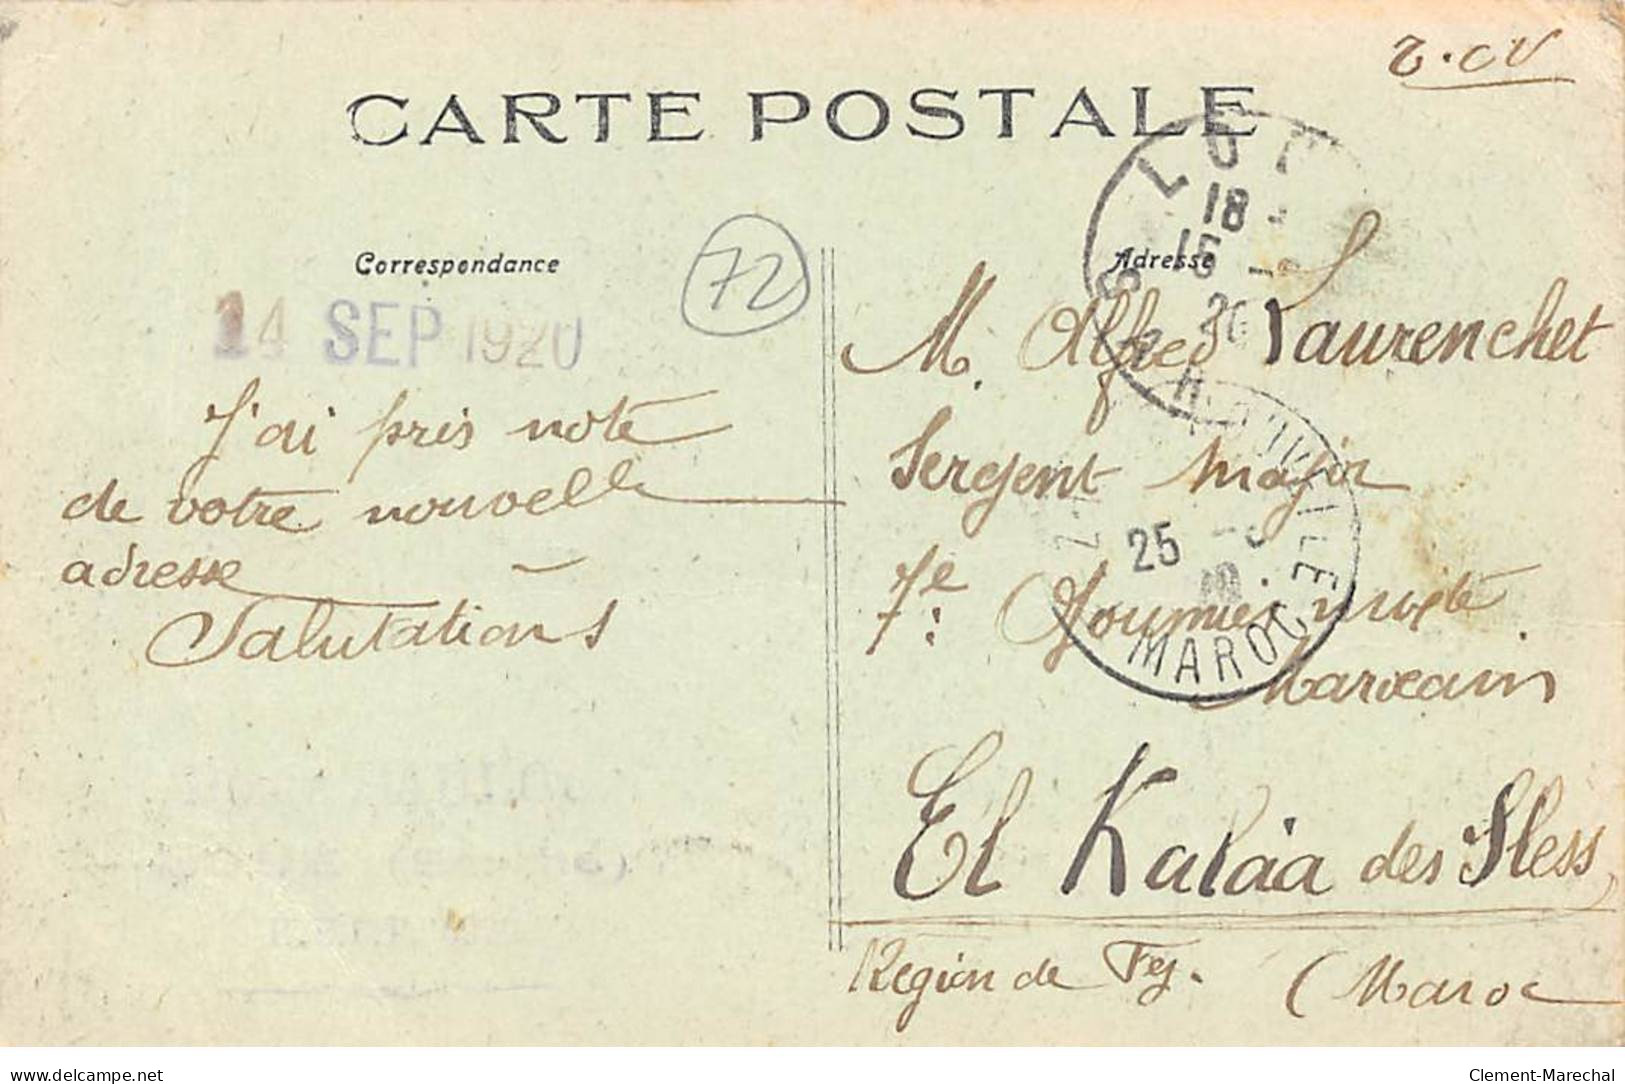 T.CV
CARTE POSTALE
Correspondance
72
Adresse
14 SEP 1920
J'ai pris note
de votre nouvelle
adresse
Salutations
M. Alfred Laurenchet
Sergent Major
7e: Goumier mixte
Marocain
El Kalâa des Sless,
Région de Fez. (Maroc
LU
18
15
20
25
MAROC
delcampe.net
Clement-Marechal